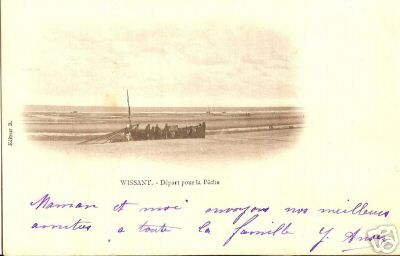 WISSANT. - Départ pour la Pêche
Maman et moi envoyons nos meilleures
amitiés à toute la famille Y
Editeur B.
eBay